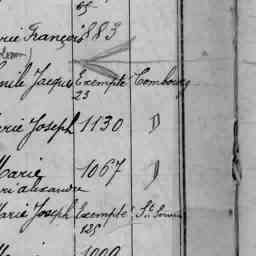 65
rie François 883
mile Jacques Exempté Combourg
23
rie Joseph 1130 D
Marie 1067 D
ri alexandre
Marie Joseph Exempté St
125